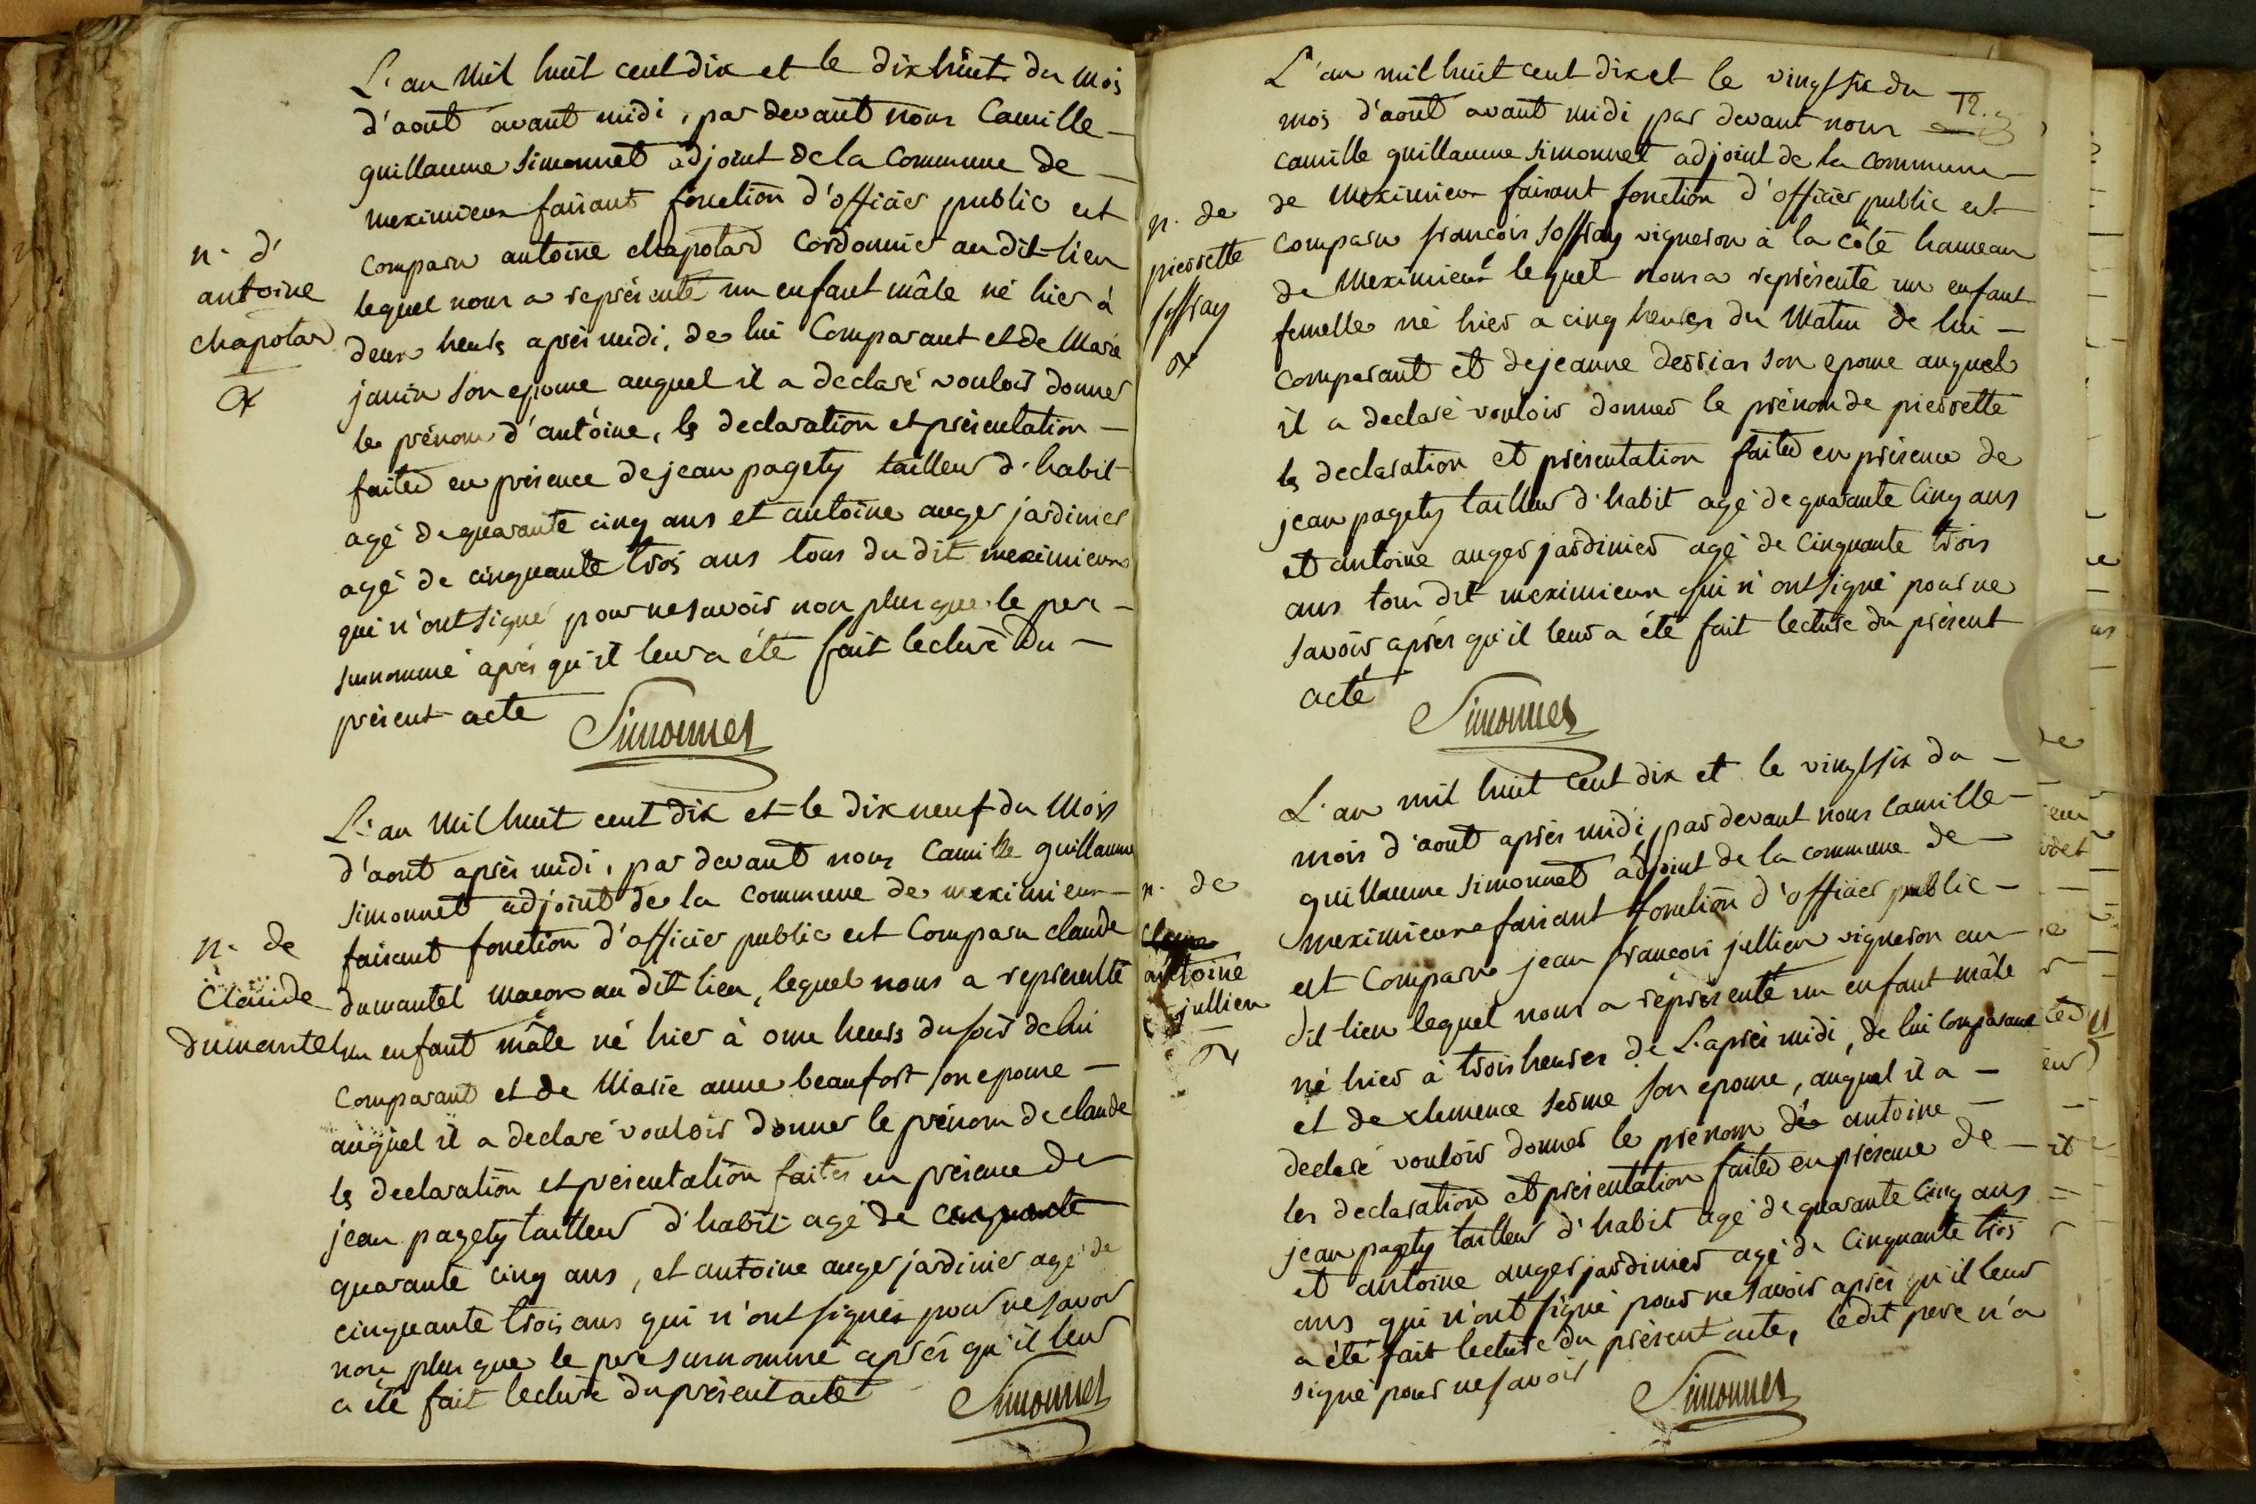 L'an mil huit cent dix et le dix huit du mois
d'aout avant midi, par devant nous Camille
guillaume simonnet adjoint de la commune de
meximieux faisant fonction d'officier public est
comparu antoine chapolard Cordonnier au dit lieu
n. d'
antoine
chapolard
lequel nous a représenté un enfant mâle né hier à
deux heures après midi, de lui Comparant et de Marie
janin son epouse auquel il a declaré vouloir donner
le prénom d'antoine, les declaration et présentation
faites en présence de jean pagety tailleur d'habit
agé de quarante cinq ans et antoine auger jardinier
agé de cinquante trois ans tous du dit meximieux
qui n'ont signé pour ne savoir non plus que le pere
surnommé après qu'il leur a été fait lecture du
présent acte
Simonnet
L'an mil huit cent dix et le dix neuf du mois
d'aout après midi, par devant nous Camille guillaume
simonnet adjoint de la commune de meximieux
faisant fonction d'officier public est Comparu claude
n. de
Claude
dumantel
dumantel macon au dit lieu, lequel nous a représenté
un enfant mâle né hier à onze heures du soir de lui
Comparant et de Marie anne beaufort son epouse
auquel il a declaré vouloir donner le prénom de claude
les declaration et présentation faites en présence de
jean pagety tailleur d'habit agé de
quarante cinq ans, et antoine auger jardinier agé de
cinquante trois ans qui n'ont signés pour ne savoir
non plus que le pere surnommé après qu'il leur
a été fait lecture du présent acte
Simonnet
12.
L'an mil huit cent dix et le vingt six du
mois d'aout avant midi par devant nous
camille guillaume simonnet adjoint de la commune
de Meximieux faisant fonction d'officier public est
n. de
pierrette
soffray
comparu francois soffray vigneron à la côte hameau
de Meximieux lequel nous a représenté un enfant
femelle né hier a cinq heures du Matin de lui
comparant et de jeanne derrias son epouse auquel
il a declaré vouloir donner le prénom de pierrette
les declaration et présentation faites en présence de
jean pagety tailleur d'habit agé de quarante cinq ans
et antoine auger jardinier agé de cinquante trois
ans tous dit meximieux qui n'ont signé pour ne
savoir après qu'il leur a été fait lecture du présent
acte
Simonnet
L'an mil huit cent dix et le vingt six du
mois d'aout après midi, par devant nous Camille
guillaume simonnet adjoint de la commune de
meximieux faisant fonction d'officier public
n. de
antoine
jullien
est Comparu jean francois jullien vigneron au
dit lieu lequel nous a représenté un enfant mâle
né hier à trois heures de L'après midi, de lui Comparant
et de clemence serme son epouse, auquel il a
declaré vouloir donner le prénom de antoine
les declaration et présentation faites en présence de
jean pagety tailleur d'habit agé de quarante cinq ans
et antoine auger jardinier agé de Cinquante trois
ans qui n'ont signé pour ne savoir après qu'il leur
a été fait lecture du présent acte, ledit pere n'a
signé pour ne savoir
Simonnet